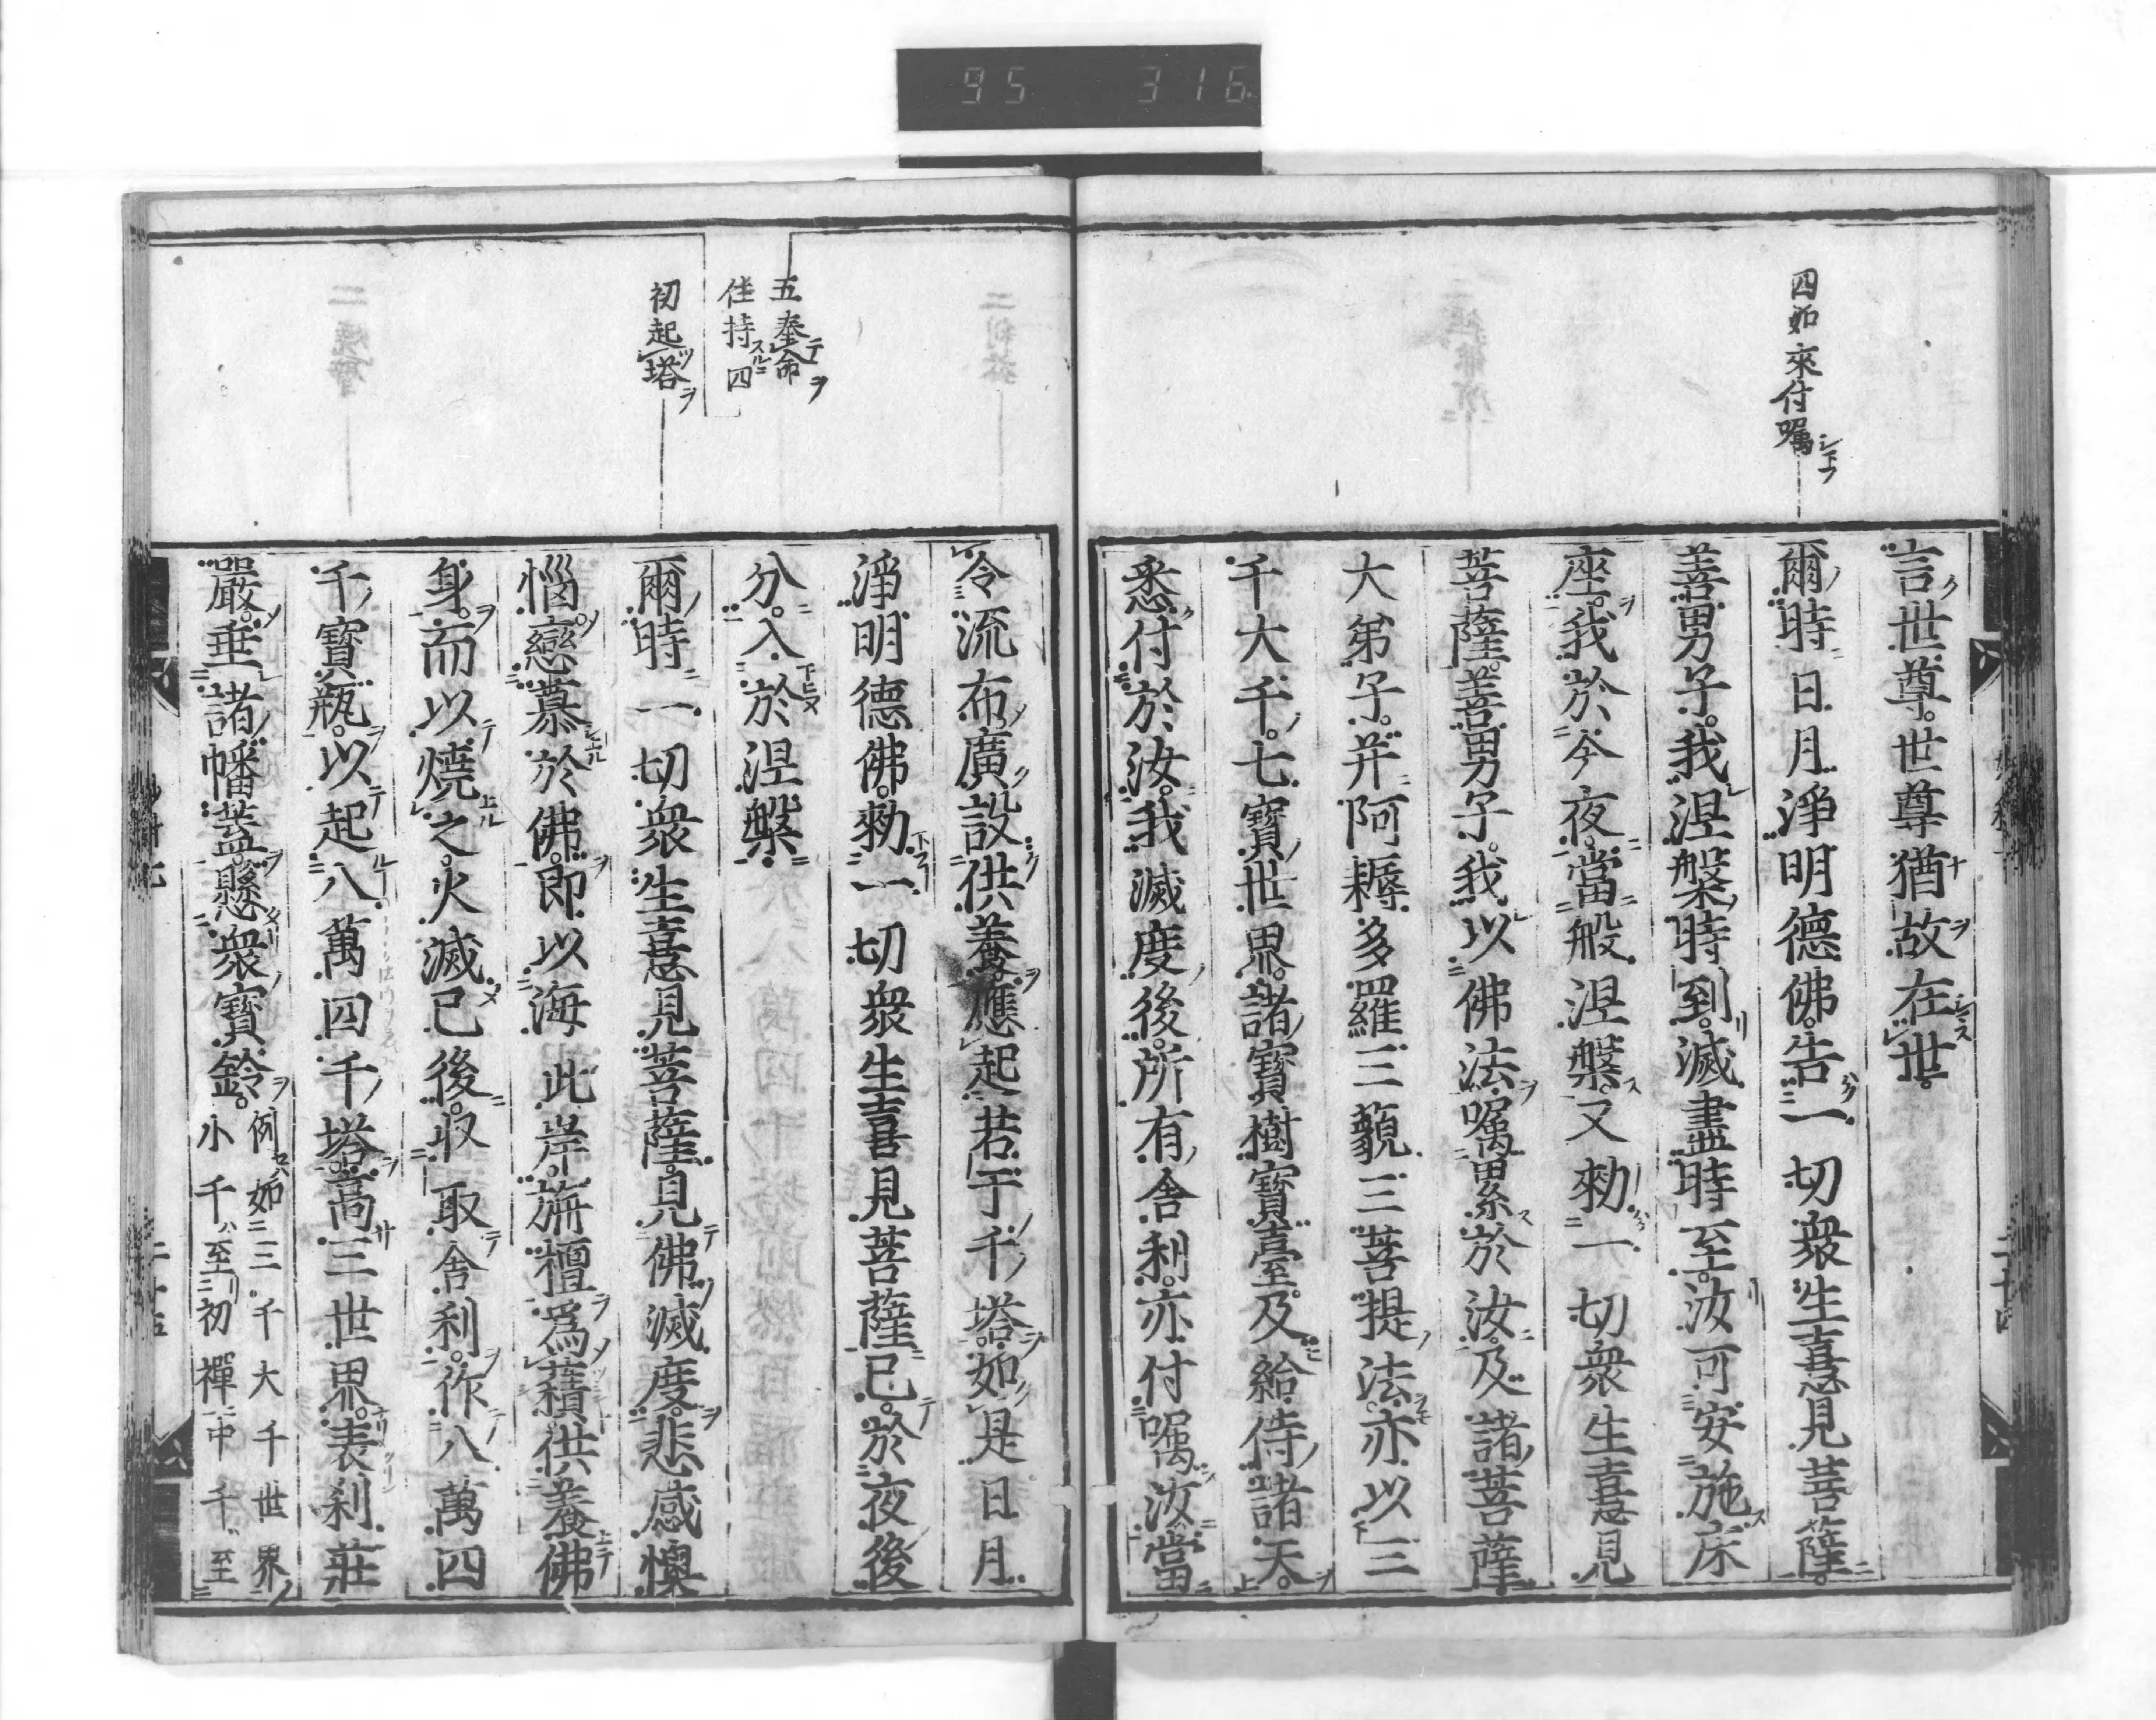 95 316
四如來付囑シ下フ
言世尊世尊猶故在世
爾時日月淨明德佛告一切衆生憙見菩薩
善男子我涅槃時到滅盡時至汝可安施床
座我於今夜當般涅槃又勑一切衆生憙見
菩薩善男子我以佛法囑累於汝及諸菩薩
大弟子并阿耨多羅三藐三菩提法亦以三
千大千七寶世界諸寶樹寶臺及給侍諸天
悉付於汝我滅度後所有舍利亦付囑汝當
五奉命
住持四
初起塔
令流布廣設供養應起若干千塔如是日月
淨明德佛勑一切衆生喜見菩薩已於夜後
分入於涅槃
爾時一切衆生憙見菩薩見佛滅度悲感懊
惱戀慕於佛即以海此岸旃檀爲𧂐供養佛
身而以燒之火滅已後收取舍利作八萬四
千寶瓶以起八萬四千塔高三世界表刹莊
嚴垂諸幡蓋懸衆寶鈴
例如三千大千世界
小千至初禪中千至